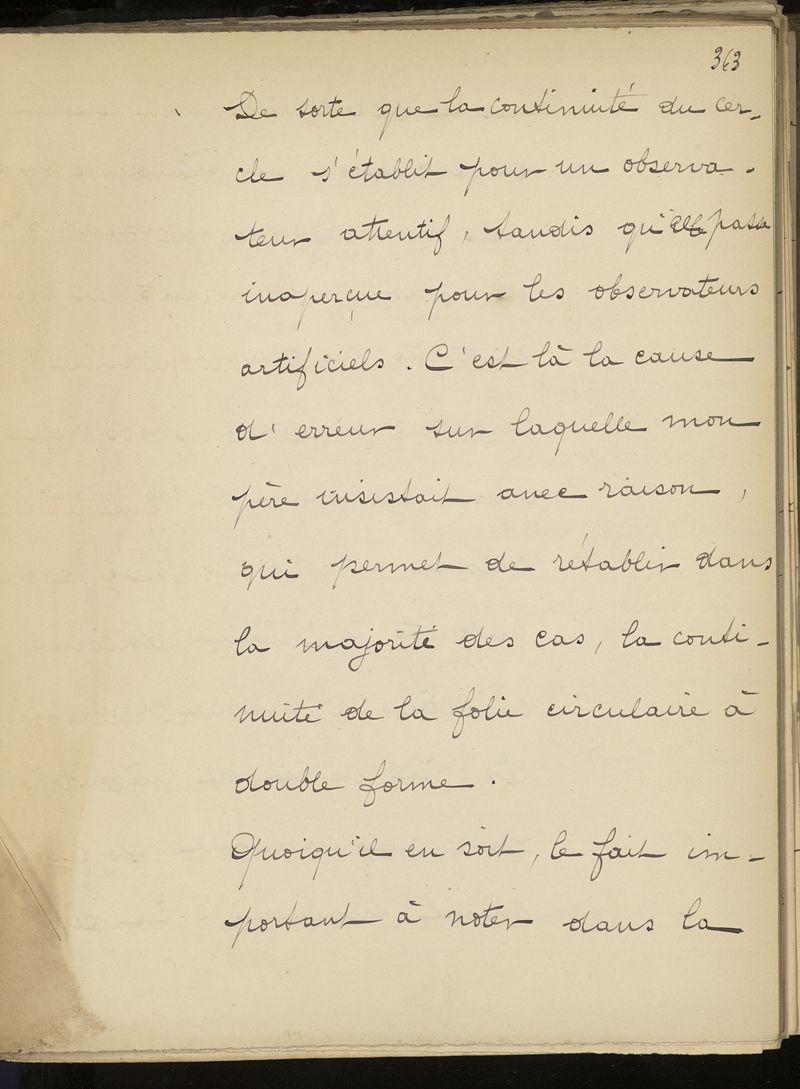 363
De sorte que la continuité du cer-
cle s'établit pour un observa-
teur attentif, tandis qu'elle passe
inaperçue pour les observateurs
artificiels. C'est là la cause
d'erreur sur laquelle mon
père insistait avec raison,
qui permet de rétablir dans
la majorité des cas, la conti-
nuité de la folie circulaire à
double forme.
Quoiqu'il en soit, le fait im-
portant à noter dans la